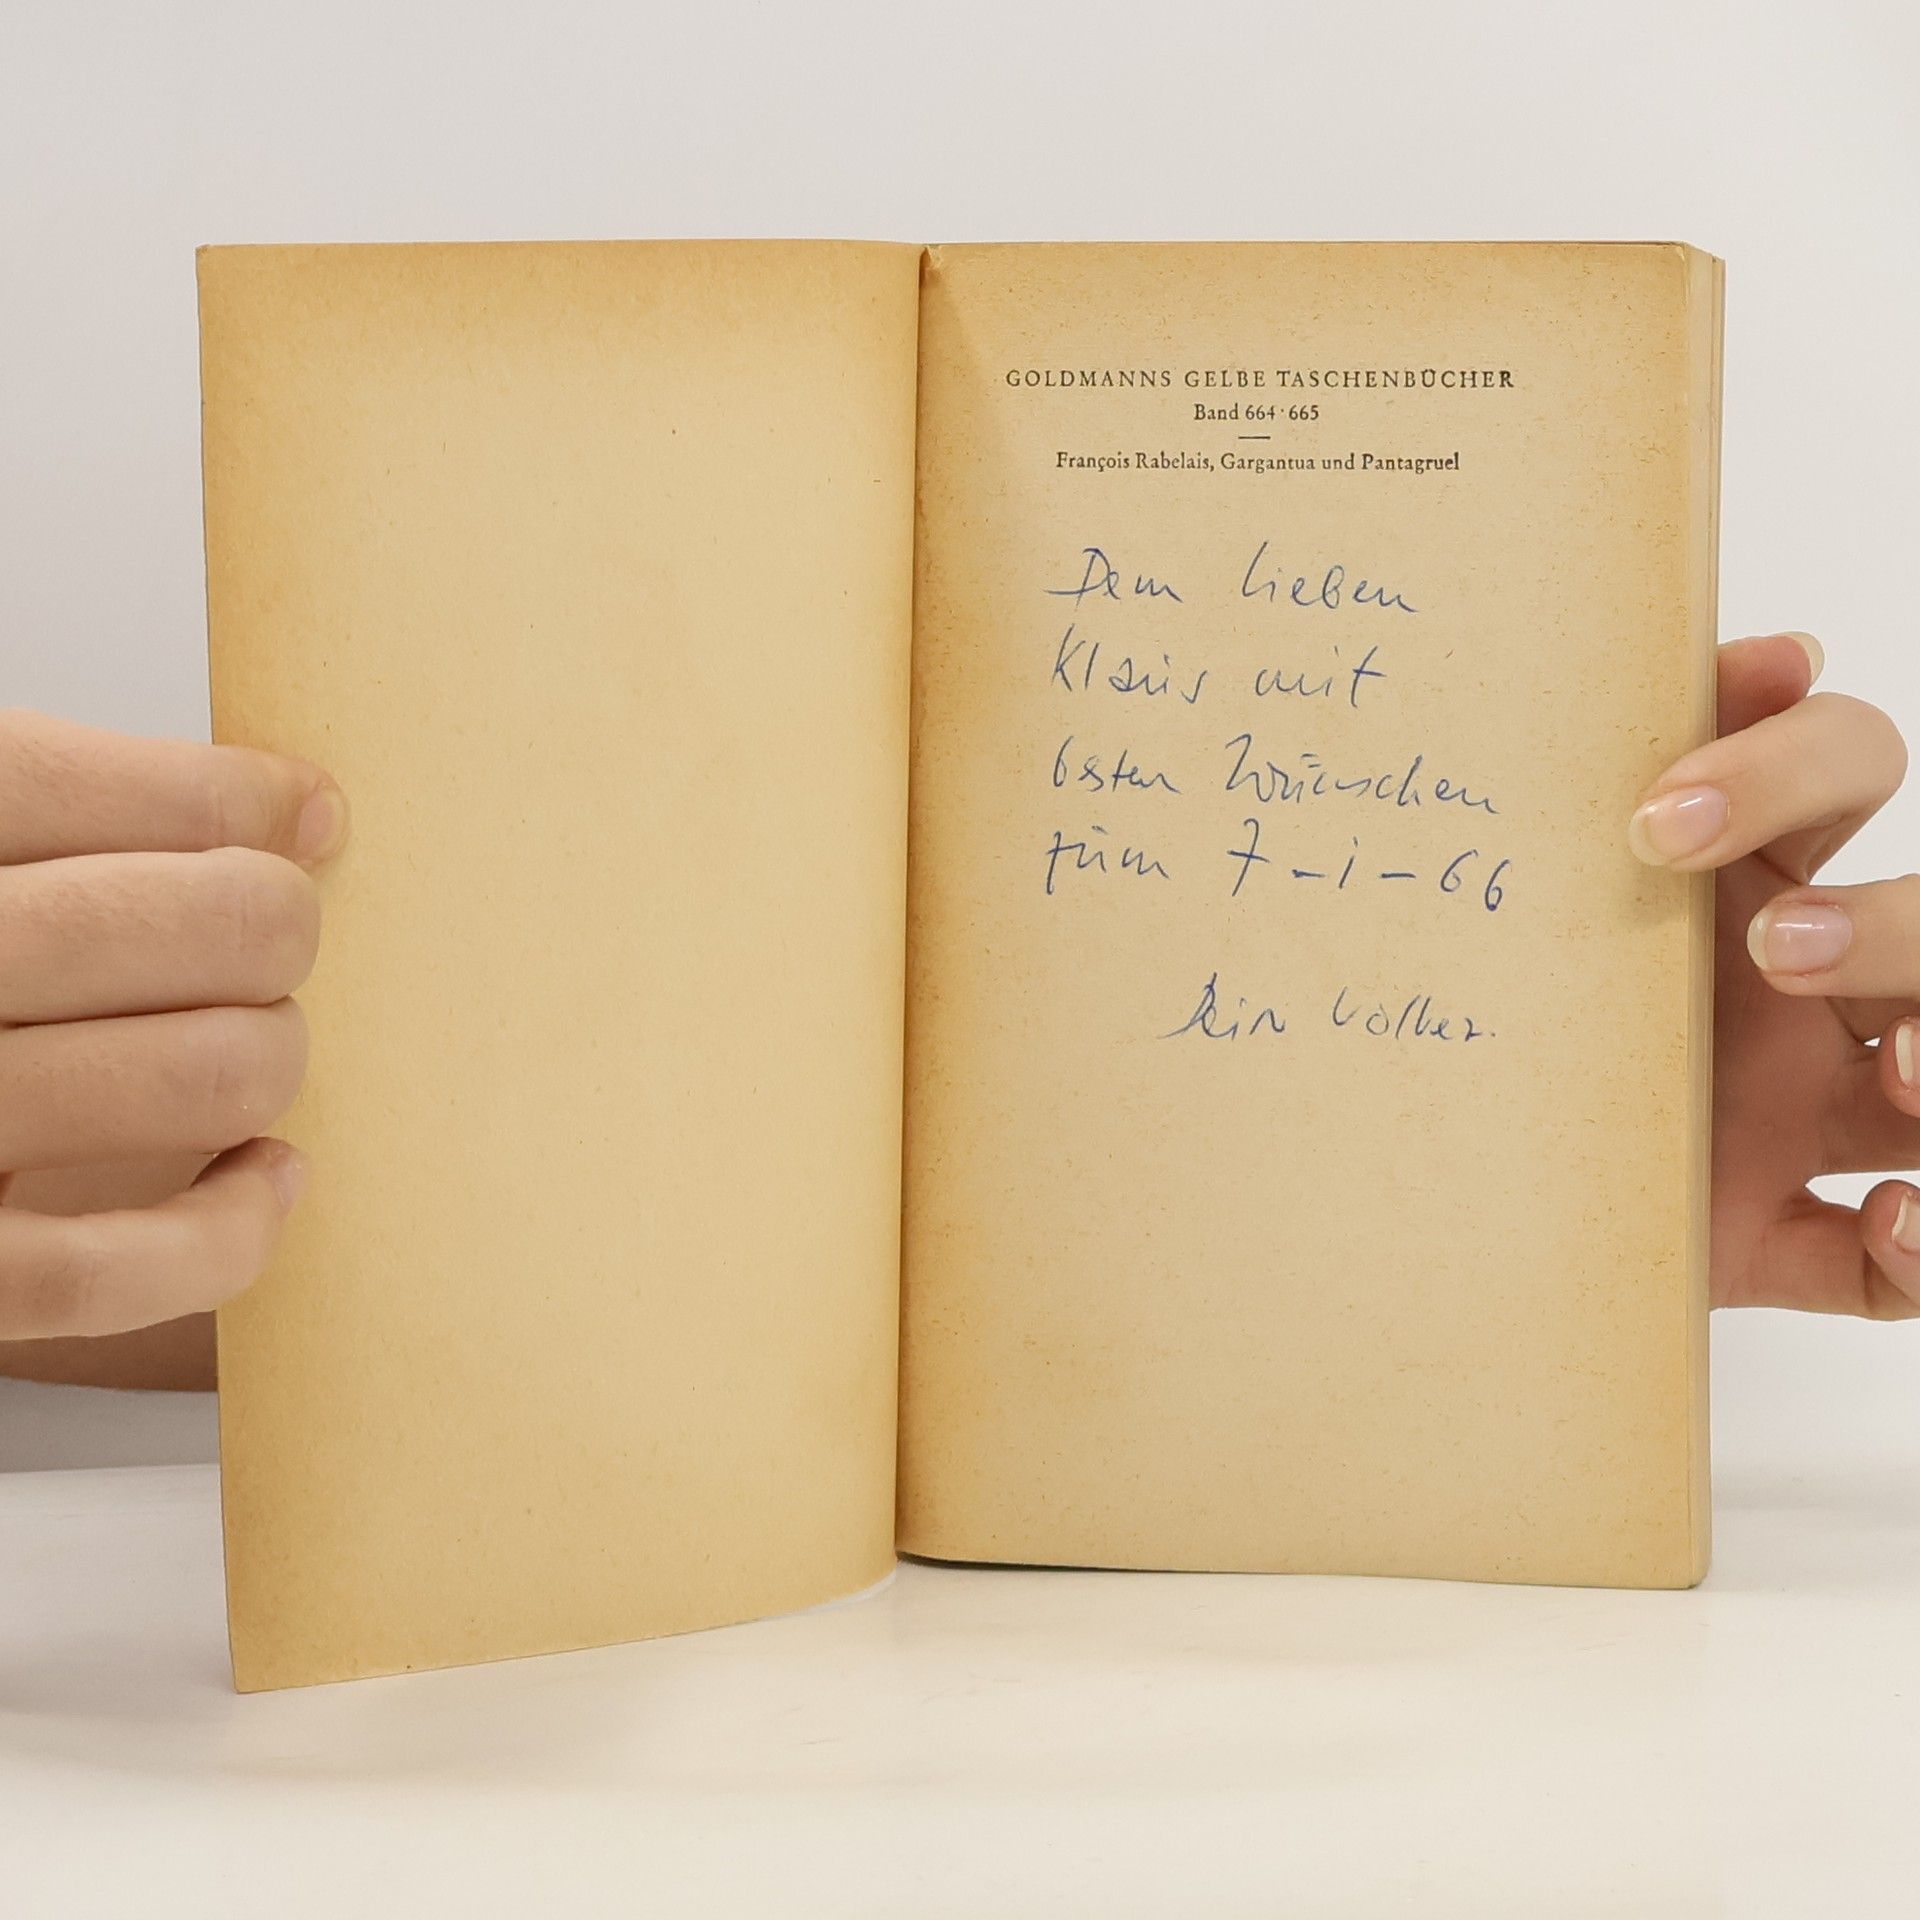 GOLDMANNS GELBE TASCHENBÜCHER
Band 664 · 665
François Rabelais, Gargantua und Pantagruel
Dem lieben
Klaus mit
besten Wünschen
zum 7-1-66
Dein Volker.